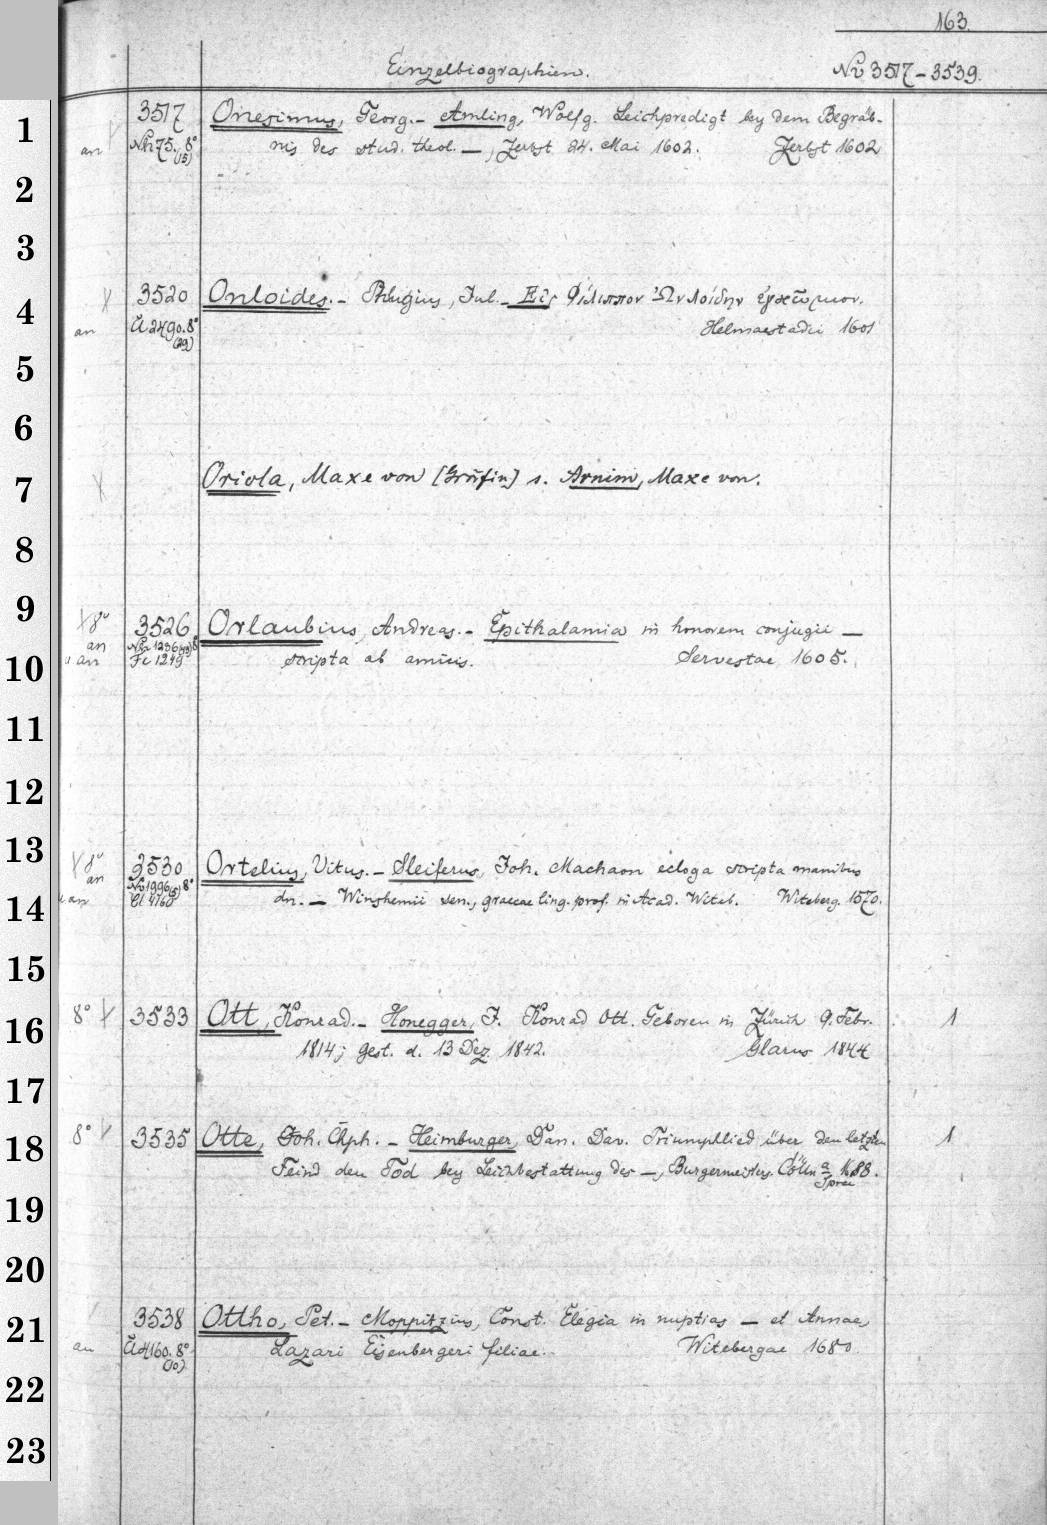 163.
Einzelbiographien. No 3517-3539.
1 3517 Onesimus, Georg.- Amling, Wolfg. Leichpredigt bey dem Begräb-
an Nh 75. 8° (15) nis des stud. theol. —, Zerbst 24. Mai 1602. Zerbst 1602
2
3
4 3520 Onloides.- Pflugius, Jul. - Εἰς Φίλιππον Ὠνλοίδην
an 2490. 8° (29) Helmaestadii 1601
5
6
7 Oriola, Maxe von [Gräfin] s. Arnim, Maxe von.
8
9 8° 3526 Orlaubius, Andreas.- Epithalamia in honorem conjugii —
an
10 an Fc 1249 scripta ab amicis. Servestae 1605.
11
12
13 8° 3530 Ortelius, Vitus.- Sleiferus, Joh. Machaon ecloga scripta manibus
an 8°
14 an 4160 dn. — Winshemii sen., graecae ling. prof. in Acad. Witeb. Witeberg. 1570.
15
16 8° 3533 Ott, Konrad.- Honegger, J. Konrad Ott. Geboren in Zürich 9. Febr. 1
1814; gest. d. 13 Dez. 1842. Glarus 1844
17
18 8° 3535 Otte, Joh. Chph. - Heimburger, Dan. Dav. Triumphlied über den letzten 1
Feind den Tod bey Leichbestattung des —, Burgermeisters. Cölln a Spree 1688.
19
20
21 3538 Ottho, Pet.- Moppitzius, Const. Elegia in nuptias — et Annae,
an 4160. 8° (10) Lazari Eisenbergeri filiae. Witebergae 1680.
22
23